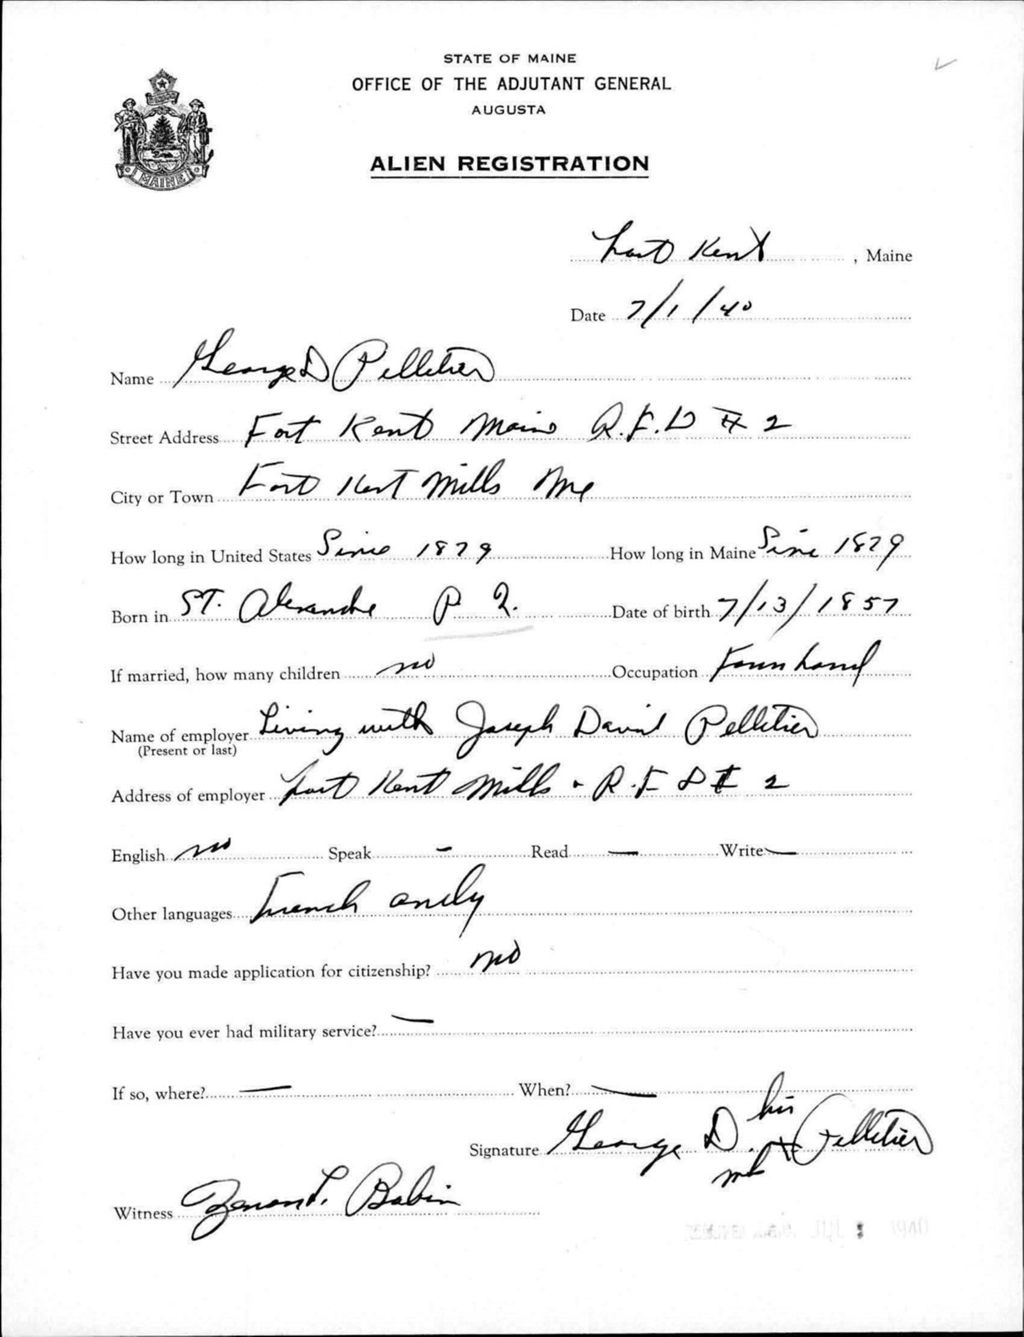 STATE OF MAINE
OFFICE OF THE ADJUTANT GENERAL
AUGUSTA
ALIEN REGISTRATION
MAINE
Fort Kent, Maine
Date 7/1/40
Name George D Pelletier
Street Address Fort Kent Maine R.F.D # 2
City or Town Fort Kent Mills Me
How long in United States Since 1879 How long in Maine Since 1879
Born in ST. Alexandre P Q. Date of birth 7/13/1857
If married, how many children no Occupation Farm hand
Name of employer Living with Joseph David Pelletier
(Present or last)
Address of employer Fort Kent Mills - R.F D # 2
English no Speak - Read - Write -
Other languages French only
Have you made application for citizenship? no
Have you ever had military service? -
If so, where? - When? -
his
Signature George D. X Pelletier
mk
Witness Zenon L. Babin